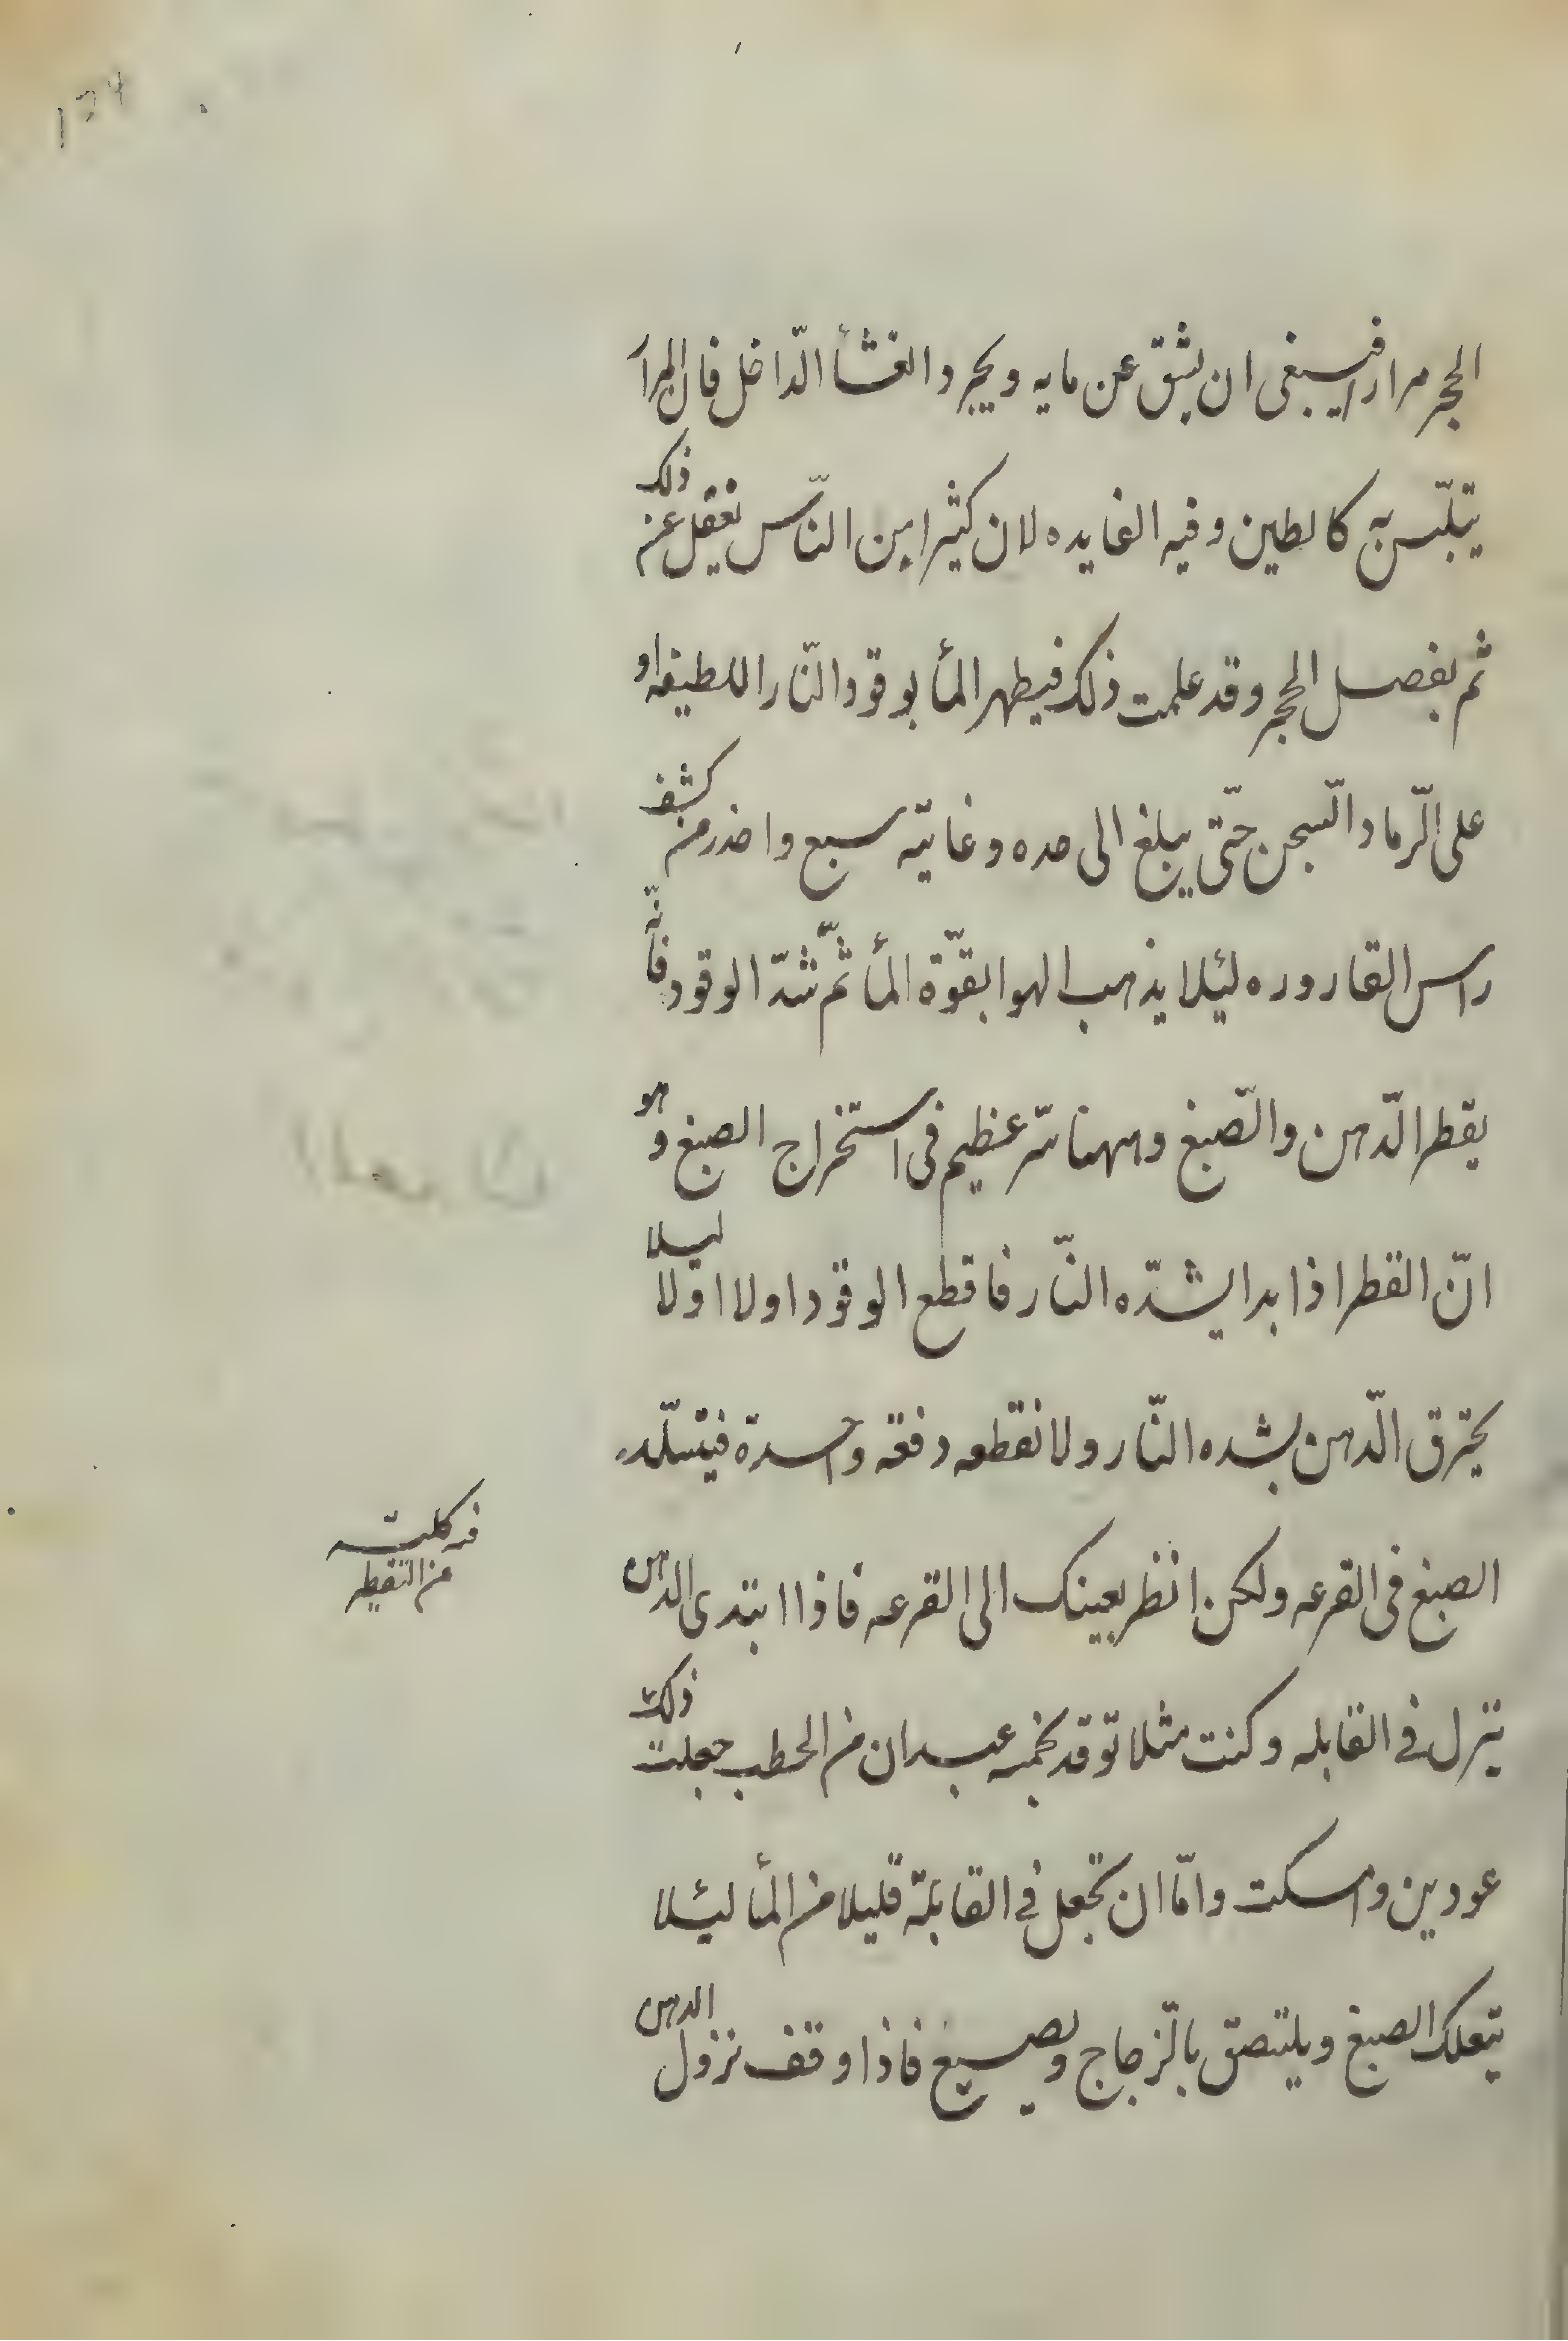 الحجر مرارا فينبغى ان يشق عن مايه ويجرد الغشأ الدّاخل فان المرأ
يتلبّس به كالطين وفيه الفايده لان كثيرا من النّاس تغفل عن ذلك
ثم يفصل الحجر وقد علمت ذلك فيطهر المأ بوقود النّار اللطيفه او
على الرّماد السّجن حتّى يبلغ الى حده وغايته سبع واحذر من كشف
راس القاروره ليئلا يذهب الهوا بقوّة المأ ثمّ شدّ الوقود فانّه
يقطر الدّهن والصّبغ وههنا سرّ عظيم فى استخراج الصبغ وهو
انّ القطر اذا بدا بشدّه النّار فاقطع الوقود اولا اولا ليلا
يحترق الدّهن بشده النّار ولا تقطعه دفعه واحدة فيتبلّد
الصبغ فى القرعه ولكن انظر بعينك الى القرعه فاذا ابتدى الدهن
ينزل فى القابله وكنت مثلا توقد بخمسه عيدان من الحطب جعلت ذلك
عودين وامسكت وامّا ان تجعل فى القابلة قليلا من المأ ليئلا
يتعلك الصبغ ويلتصق بالزّجاج ويصيع فاذا وقف نزول الدهن
كلت
عن التقطير